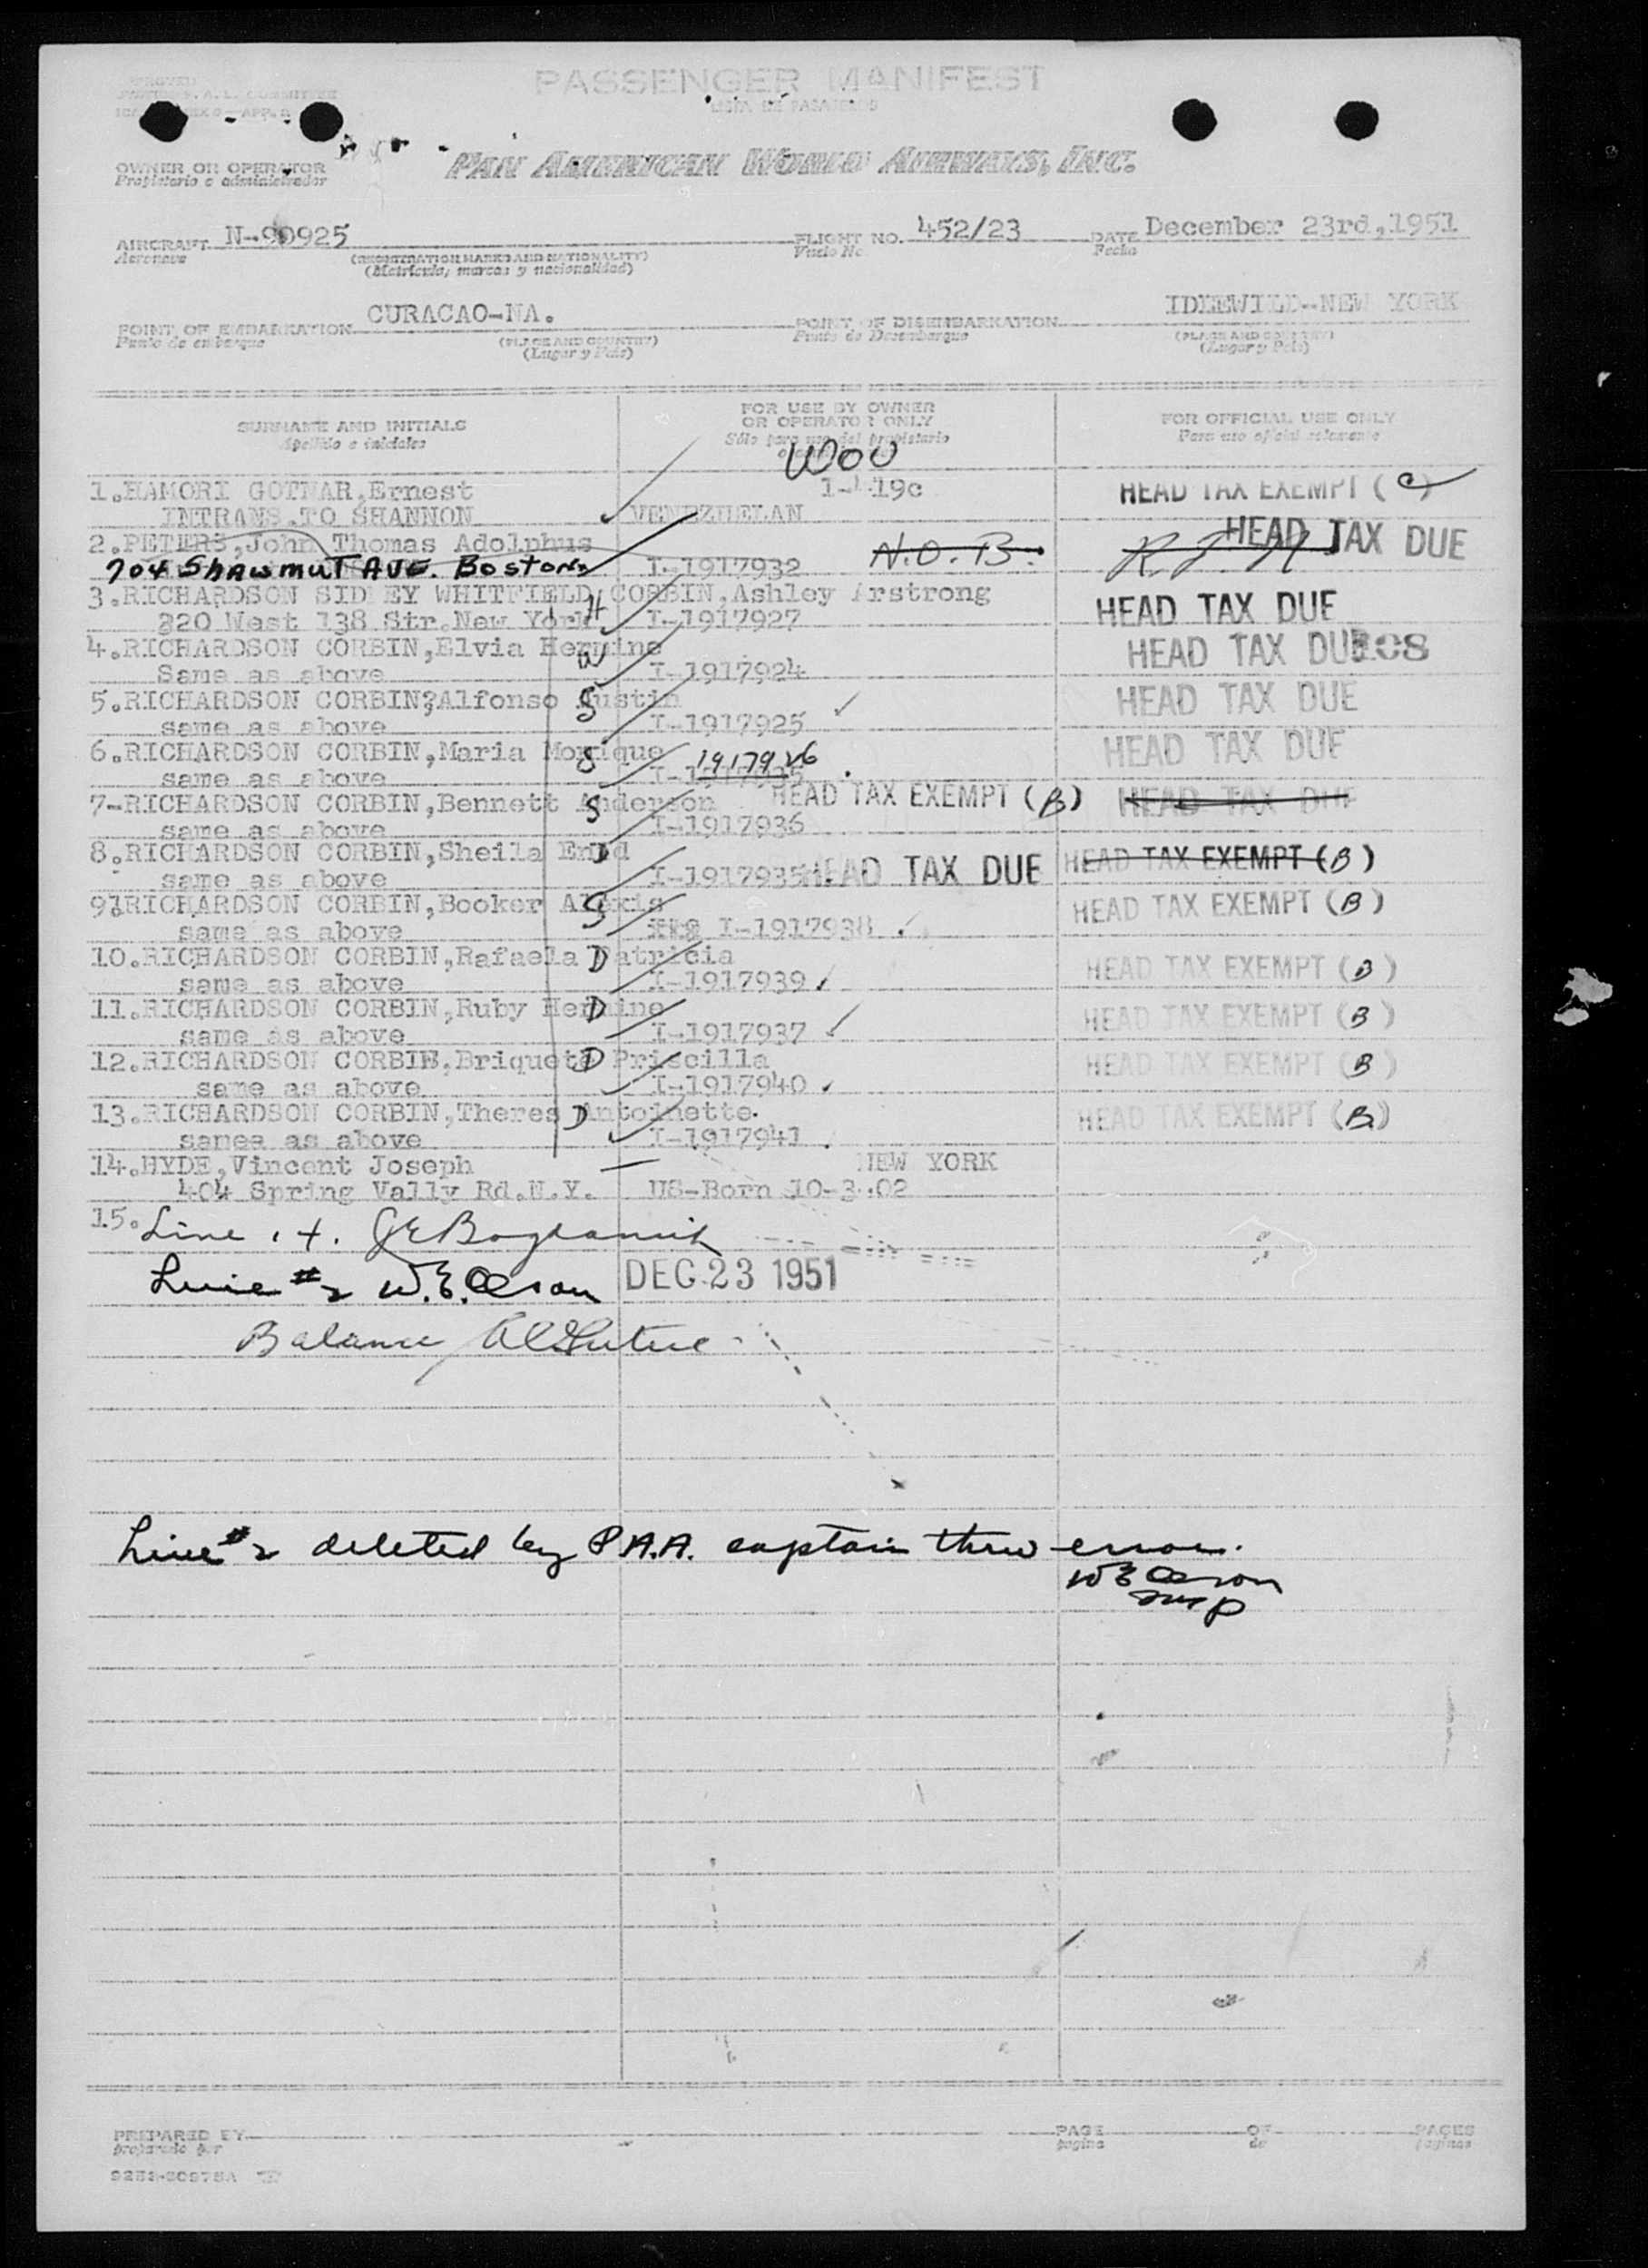 PASSENGER MANIFEST
LISTA DE PASAJEROS
OWNER OR OPERATOR PAN AMERICAN WORLD AIRWAYS, INC.
Propietario o administrador
AIRCRAFT N-90925 FLIGHT NO. 452/23 DATE December 23rd,1951
Aeronave (REGISTRATION MARKS AND NATIONALITY) Vuelo No. Fecha
(Matricula, marcas y nacionalidad)
POINT OF EMBARKATION CURACAO-NA. POINT OF DISEMBARKATION IDLEWILD--NEW YORK
Punto de embarque (PLACE AND COUNTRY) Punto de Desembarque (PLACE AND COUNTRY)
(Lugar y Pais) (Lugar y Pais)
SURNAME AND INITIALS FOR USE BY OWNER OR OPERATOR ONLY FOR OFFICIAL USE ONLY
Apellido e iniciales Sólo para uso del propietario Para uso oficial solamente
WOV
1.HAMORI GOTNAR,Ernest HEAD TAX EXEMPT (C)
INTRANS.TO SHANNON VENEZUELAN
2.PETERS,John Thomas Adolphus N.O.B. HEAD TAX DUE
704 Shawmut AVE. Boston I-1917932
3.RICHARDSON SIDNEY WHITFIELD CORBIN,Ashley Arstrong
320 West 138 Str.New York H I-1917927 HEAD TAX DUE
4.RICHARDSON CORBIN,Elvia Hermine
Same as above W I-1917924 HEAD TAX DUE
5.RICHARDSON CORBIN?Alfonso Austin
same as above S I-1917925 HEAD TAX DUE
6.RICHARDSON CORBIN,Maria Monique
same as above S 1917926 HEAD TAX DUE
7-RICHARDSON CORBIN,Bennett Anderson HEAD TAX EXEMPT (B) HEAD TAX DUE
same as above S I-1917936
8.RICHARDSON CORBIN,Sheila Enid
same as above D I-1917935 HEAD TAX DUE HEAD TAX EXEMPT (B)
9.RICHARDSON CORBIN,Booker Alexis
same as above S I-1917938 HEAD TAX EXEMPT (B)
10.RICHARDSON CORBIN,Rafaela Patricia
same as above D I-1917939 HEAD TAX EXEMPT (B)
11.RICHARDSON CORBIN,Ruby Hermine
same as above D I-1917937 HEAD TAX EXEMPT (B)
12.RICHARDSON CORBIN,Briquete Priscilla
same as above D I-1917940 HEAD TAX EXEMPT (B)
13.RICHARDSON CORBIN,Theres Antoinette.
samea as above D I-1917941 HEAD TAX EXEMPT (B)
14.HYDE,Vincent Joseph NEW YORK
404 Spring Vally Rd.N.Y. US-Born 10-3-02
15.
Line #2 W.E.Olson DEC 23 1951
Balance
Line #2 deleted by P.A.A. captain thru error.
WE Olson
insp
PREPARED BY PAGE OF PAGES
preparado por pagina de paginas